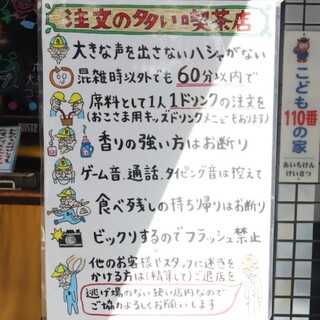 注文の多い喫茶店
大きな声を出さないハシャがない
混雑時以外でも60分以内で
原料として1人1ドリンクの注文を
(おこさま用キッズドリンクメニューもあります)
香りの強い方はお断り
ゲーム音、通話、タイピング音は控えて
食べ残しの持ち帰りはお断り
ビックリするのでフラッシュ禁止
他のお客様やスタッフに迷惑を
かける方は(精算して)ご退店を
逃げ場のない狭い店内なので
ご協力よろしくお願いします
こども
110番
の家
あいちけん
けいさつ